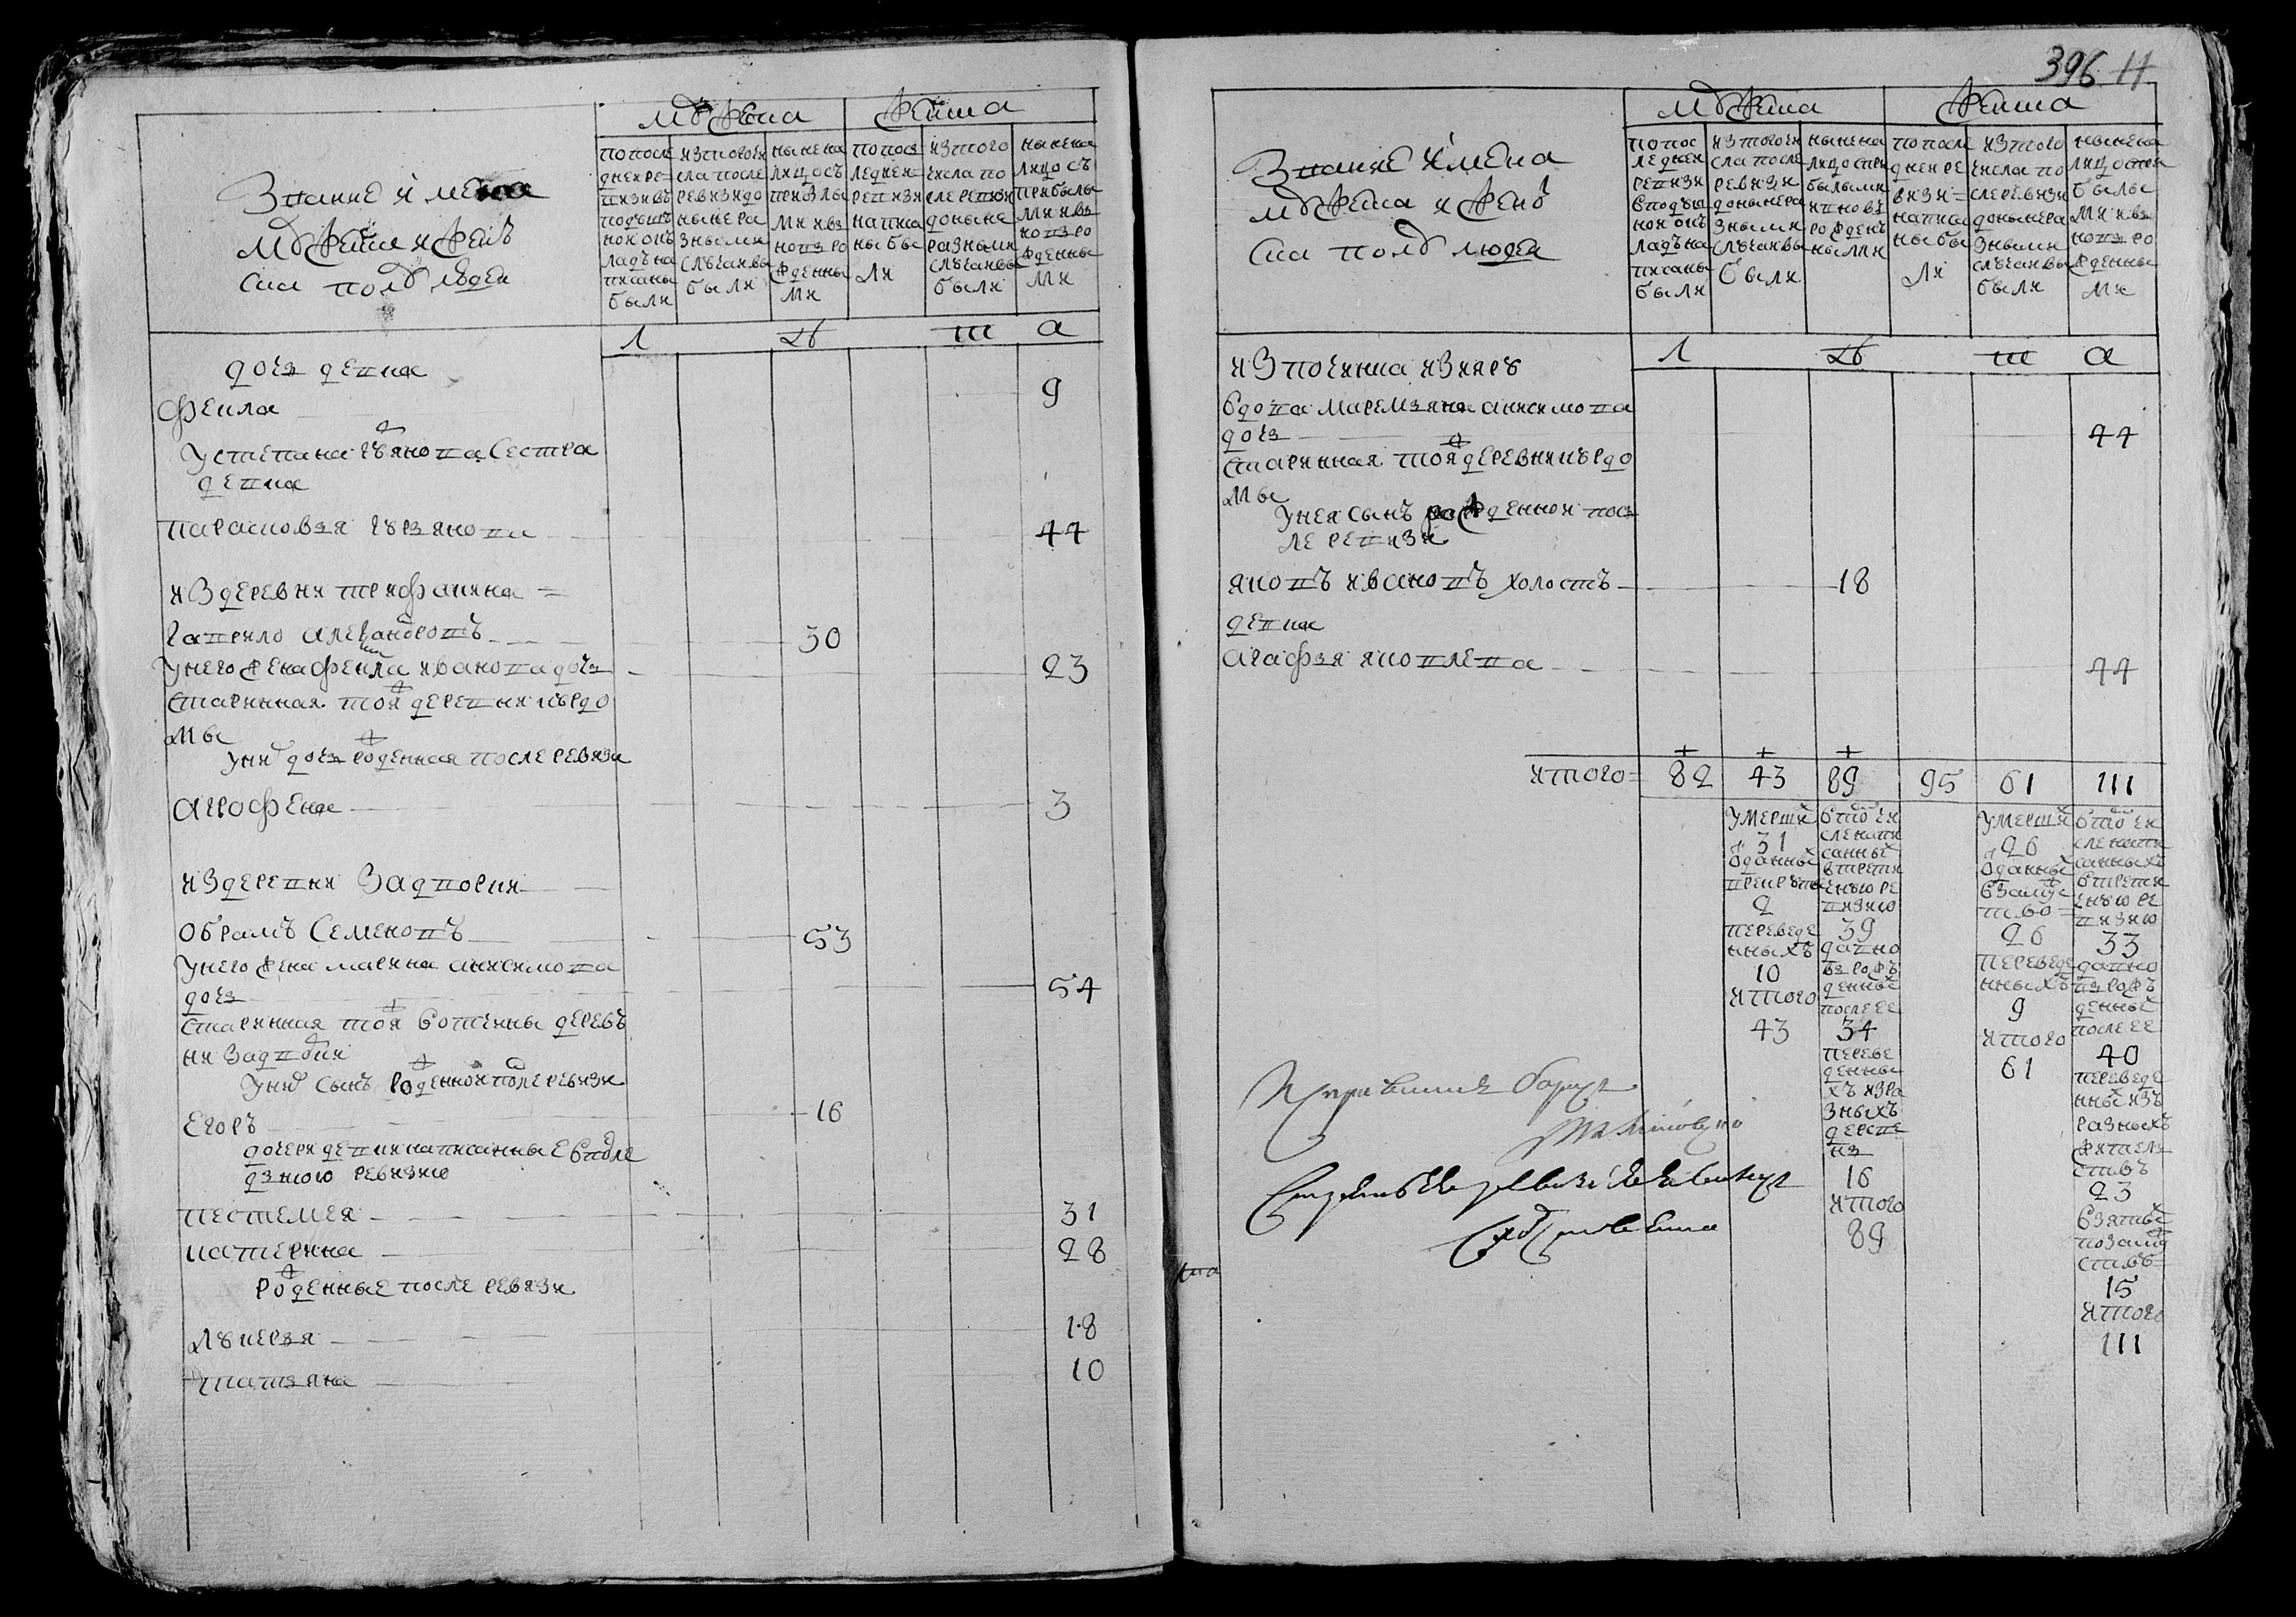 396 11
Мужеска Женска
Звание и имена
Мужеска и женъ
ска полу людеи
попосле
дней ре
визивъ
подушъ
нои окъ
ладъ на
писаны
были
изтогочи
сла после
ревизи до
ныне ра
зными
случаивы
были
ныне на
лицо съ
прибылы
ми ивъ
новь ро
жденны
ми
попос
ледней
ревизи
написа
ны бы
ли
изтого
числа по
слеревизи
доныне
разными
случаивы
были
ныне на
лицо съ
прибылы
ми ивъ
новь ро
жденны
ми
л ѣ т а
дочь девка
Фекла 9
У степана гурянова сестра
девка
парасковья гурьянова 44
из деревни трифакина
гаврило александровъ 30
унего жена фекла иванова дочь 23
старинная тои же деревни кърдо
мы
уних дочь рожденная после ревизи
агрофена 3
из деревни задворки
обрамъ семеновъ 53
унего жена марина анисимова
дочь 54
старинная тои же вотчины деревъ
ни задворки
уних сынъ рожденнои после ревизи
егоръ 16
дочери девки написанные впосле
дънюю ревизию
пестемея 31
катерина 28
рожденные после ревизи
лукерья 18
татьяна 10
Мужеска Женска
Звание имена
мужеска и женъ
ска полу людеи
попос
ледней
ревизи
вподуш
нои окъ
ладъ на
писаны
были
изтогочи
сла после
ревизи
доныне ра
зными
случаивы
были
ныне на
лицо спри
былыми
ивновь
рожденъ
ными
попосле
дней ре
визи
написа
ны бы
ли
изтого
числа по
слеревизи
доныне ра
зными
случаивы
были
ныне на
лицо спри
былы
ми ивъ
новь ро
жденны
ми
л ѣ т а
ис починка изияръ
вдова маремьяна анисимова
дочь 44
старинная тои же деревни кърдо
мы
унея сынъ рожденнои пос
ле ревизи
яковъ ивановъ холостъ 18
девка
агафья яковлева 44
итого 82 43 89 95 61 111
умерших
31
отданных
врекруты
2
переведе
нныхъ
10
итого
43
втом чи
сле напи
санных
втрети
ею ре
визию
39
давно
вь рожъ
денных
после ее
34
переве
денны
хъ изра
зныхъ
дереве
нь
16
итого
89
умерших
26
отданных
взамуже
ство
26
переведе
нныхъ
9
итого
61
втом чи
сле напи
санныхъ
втрети
ею ре
визию
33
давно
вь рожъ
денных
после ее
40
переведе
нных изъ
разныхъ
жителъ
ствъ
23
взятых
позамуж
ствъ
15
итого
111